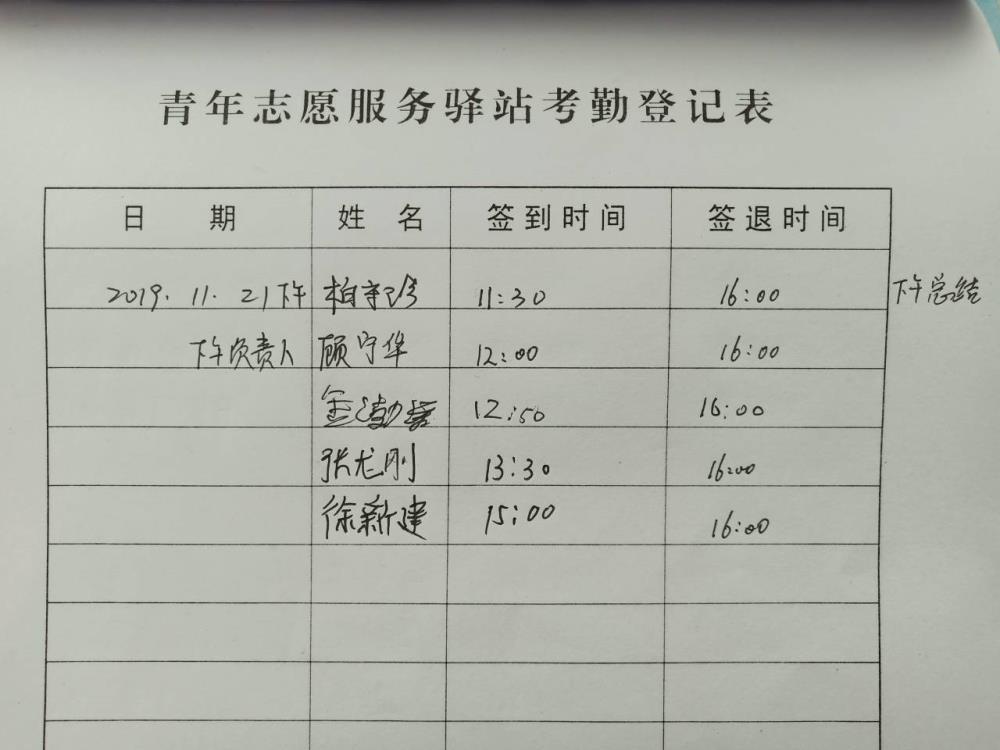 青年志愿服务驿站考勤登记表
日期 姓名 签到时间 签退时间
2019.11.21下午 柏守珍 11:30 16:00 下午总结
下午负责人 顾守华 12:00 16:00
金 12:50 16:00
张龙刚 13:30 16:00
徐新建 15:00 16:00